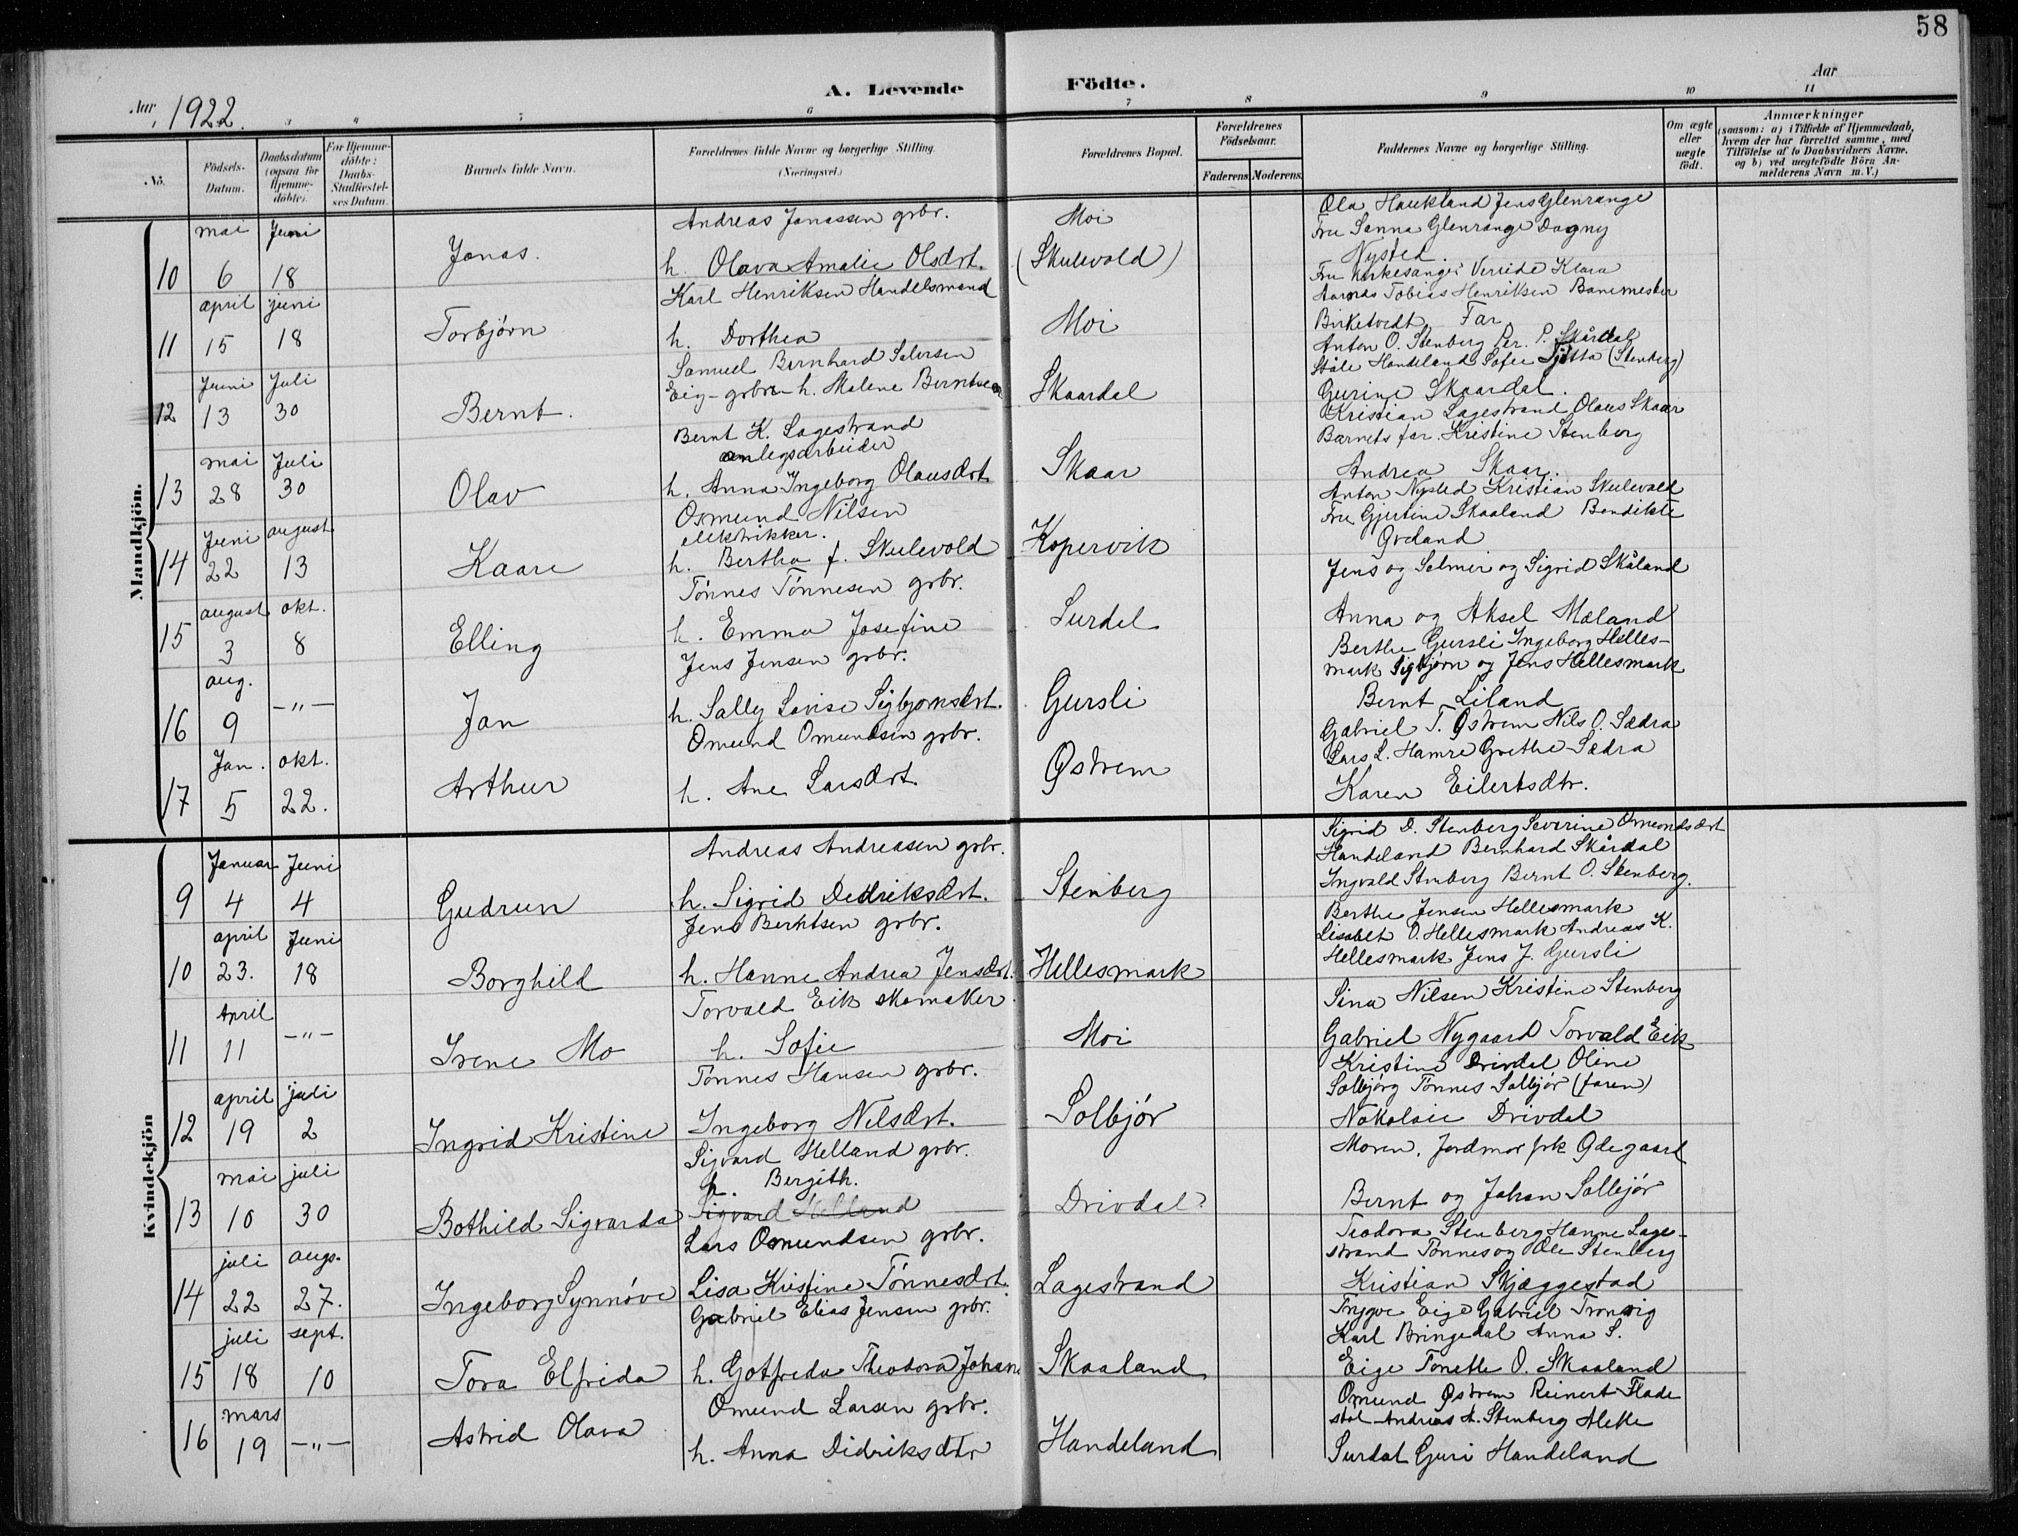 58
A. Levende Födte.
Aar 1922.
Aar
3 4 5 6 7 8 9 10 11
No.
Födsels-Datum.
Daabsdatum (ogsaa for Hjemme-döbte).
For Hjemme-döbte: Daabs-Stadfæstel-ses Datum.
Barnets fulde Navn.
Forældrenes fulde Navne og borgerlige Stilling. (Næringsvei.)
Forældrenes Bopæl.
Forældrenes Födselsaar.
Faderens. Moderens.
Faddernes Navne og borgerlige Stilling.
Om ægte eller uægte födt.
Anmærkninger
(saasom: a) i Tilfælde af Hjemmedaab, hvem der har forrettet samme, med Tilföielse af to Daabsvidners Navne, og b) ved uægtefödte Börn Anmelderens Navn m. V.)
Mandkjön.
10 mai 6 Juni 18 Jonas.
Andreas Jonassen grbr.
h. Olava Amalie Olsdrt.
Moi (Skulevold)
Ola Haukland Jens Glenrange
Fru Sanna Glenrange Dagny
Nysted.
11 april 15 juni 18 Torbjørn
Karl Henriksen Handelsmand
h. Dorthea
Moi
Fru kirkesanger Klara
Tobias Henriksen Banemester
Birketvedt Far
12 Juni 13 Juli 30 Bernt.
Samuel Bernhard Salvesen
Eig- grbr h. Malene Berntsen
Skaardal
Anton O. Stenberg Per. P. Skårdal
Ståle Handeland Sofie (Stenberg)
Gurine Skaardal.
13 mai 28 Juli 30 Olav
Bernt K. Lagestrand
anlegsarbeider
h. Anna Ingeborg Olausdrt
Skaar
Kristian Lagestrand Olaus Skaar
Barnets far. Kristine Stenberg
Andrea Skaar.
14 Juni 22 august 13 Kaare
Osmund Nilsen
elektrikker.
h. Bertha f. Skulevold
Kopervik
Anton Nysted Kristian Skulevold
Fru Gjertine Skaaland Bendikte
Øveland
15 august 3 okt. 8 Elling
Tønnes Tønnesen grbr.
h. Emma Josefine
Surdal
Jens og Selmer og Sigrid Skåland
Anna og Aksel Mæland
16 aug. 9 -"- Jan
Jens Jensen grbr.
h. Sally Lovise Sigbjørnsdrt.
Gursli
Berthe Gursli Ingeborg Helles-
mark Sigbjørn og Jens Hellesmark
Bernt Liland
17 Jan. 5 okt. 22. Arthur
Omund Omundsen grbr.
h. Ane Larsdrt
Østrem
Gabriel T. Østrem Nils O. Sædra
Lars L. Hamre Grethe Sædra
Karen Eilertsdtr.
Kvindekjön
9 Januar 4 Juni 4 Gudrun
Andreas Andreasen grbr.
h. Sigrid Dedriksdrt.
Stenberg
Sigrid D. Stenberg Severine Omundsdrt
Handeland Bernhard Skårdal
Ingvald Stenberg Bernt O. Stenberg.
10 april 23. Juni 18 Borghild
Jens Berntsen grbr.
h. Hanne Andrea Jensdrt.
Hellesmark
Berthe Jensen Hellesmark
Lisabet O. Hellesmark Andreas K.
Hellesmark Jens J. Gursli
11 April 11 -"- Irene Mo
Torvald Eik skomaker.
h. Sofie
Moi
Sina Nilsen Kristine Stenberg
Gabriel Nygaard Torvald Eik
12 april 19 juli 2 Ingrid Kristine
Tønnes Hansen grbr.
Ingeborg Nilsdrt.
Solbjør
Kristine Drivdal Oline
Solbjørg Tønnes Solbjør (faren)
Nokolaie Drivdal
13 mai 10 juli 30 Bothild Sigvarda
Sigvard Helland grbr.
h. Bergith.
Sigvard Helland
Drivdal
Moren, Jordmor frk Ødegaard
Bernt og Johan Solbjør
14 juli 22 augs. 27. Ingeborg Synnøve
Lars Osmundsen grbr.
Lisa Kristine Tönnesdrt.
Lagestrand
Teodora Stenberg Hanne Lage-
strand Tønnes og Ole Stenberg
Kristian Skjæggestad
15 juli 18 sept. 10 Tora Elfrida
Gabriel Elias Jensen grbr.
h. Gotfreda Theodora Johan
Skaaland
Trygve Eige Gabriel Tronvig
Karl Bringedal Anna S.
Eige Tonette O. Skaaland
16 mars 19 -"- Astrid Olava
Omund Larsen grbr.
h. Anna Didriksdtr
Handeland
Omund Østrem Reinert Flade
støl Andreas A. Stenberg Mette
Surdal Guri Handeland